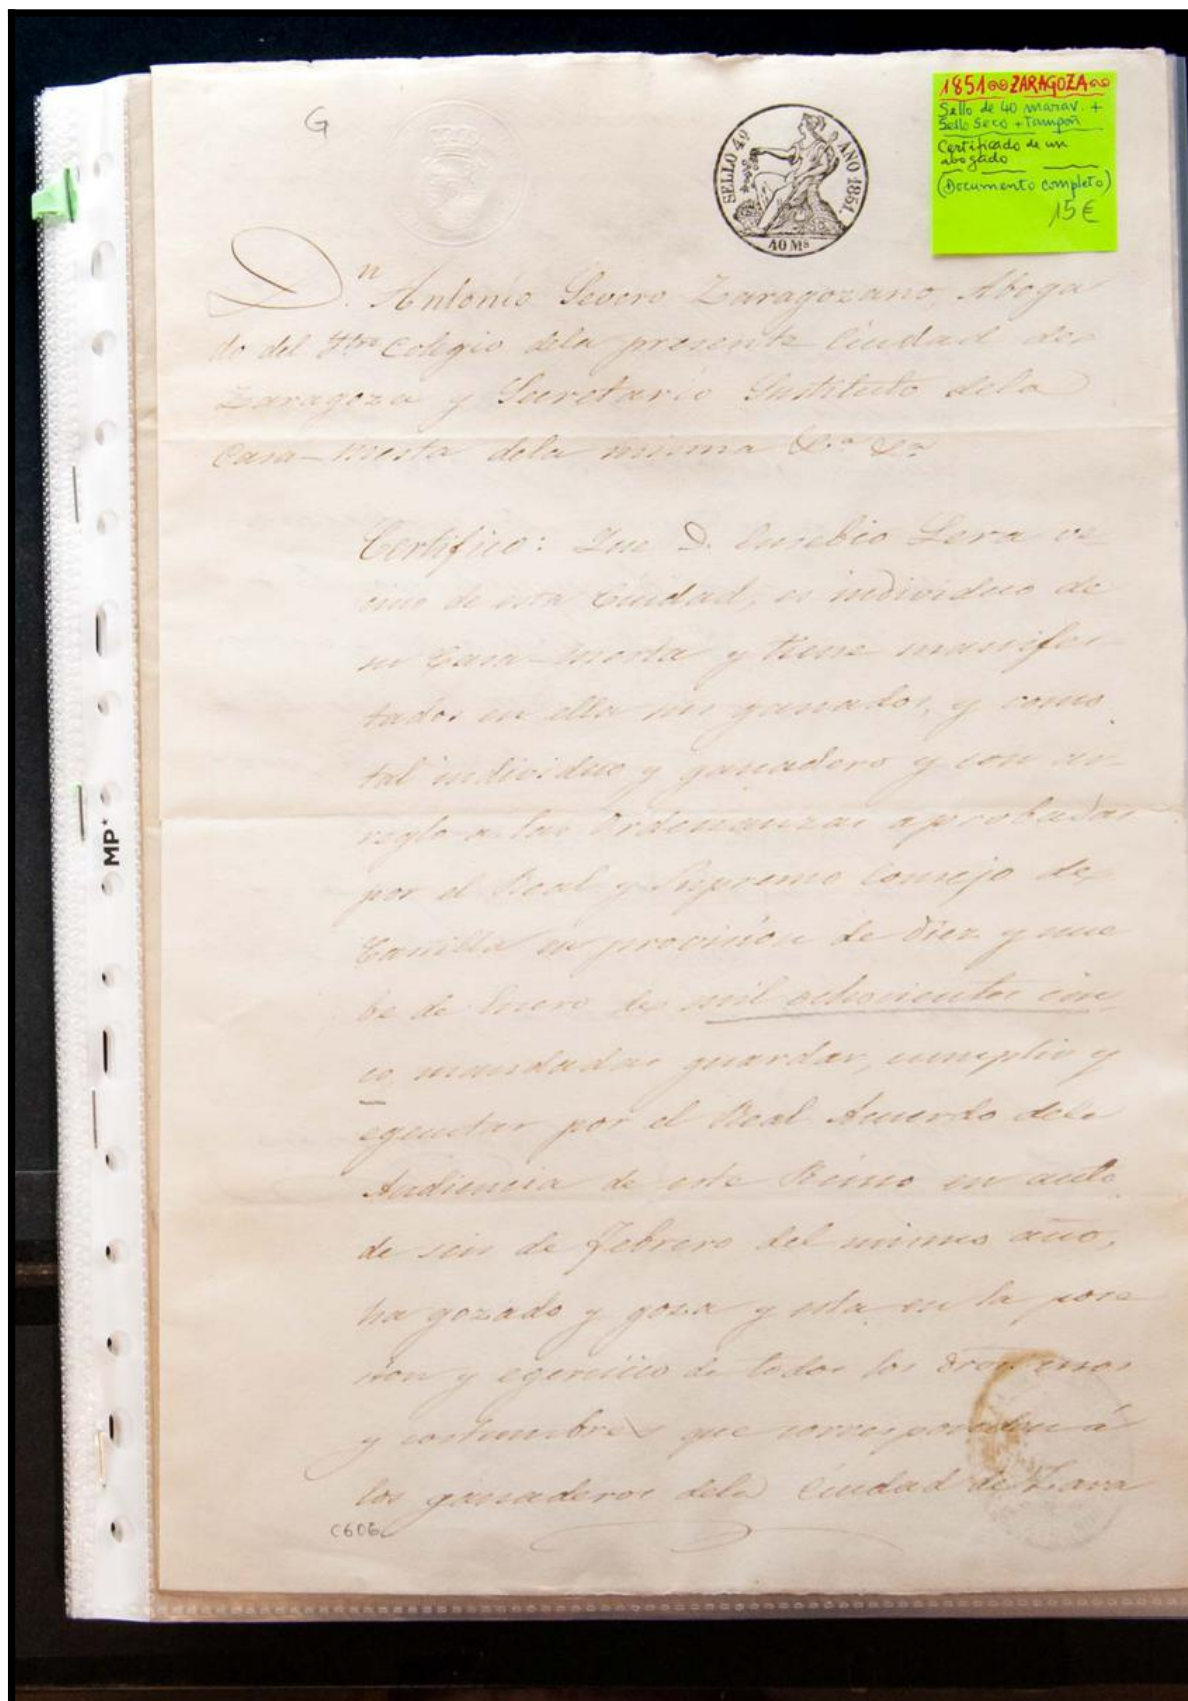 G
SELLO 4º AÑO 1851.
40 Ms
1851 ZARAGOZA
Sello de 40 marav. +
Sello Seco + Tampón
Certificado de un
abogado
(Documento completo)
15€
D.n Antonio Severo Zaragozano, Aboga
do del Iltre Colegio dela presente Ciudad de
Zaragoza y Secretario Sustituto dela
Casa-Mesta dela misma &.a &.a
Certifico: Que D. Eusebio Lera ve
cino de esta Ciudad, es individuo de
su Casa-mesta y tiene manifes
tados en ella sus ganados, y como
tal individuo y ganadero y con ar
reglo a las Ordenanzas aprobadas
por el Real y Supremo Consejo de
Castilla en provision de diez y nue
be de Enero de mil ochocientos cin
co, mandadas guardar, cumplir y
egecutar por el Real Acuerdo dela
Audiencia de este Reino en auto
de seis de Febrero del mismo año,
ha gozado y goza y esta en la pose
sion y egercicio de todos los usos
y costumbres que corresponden á
los ganaderos dela Ciudad de Zara
C606
MP